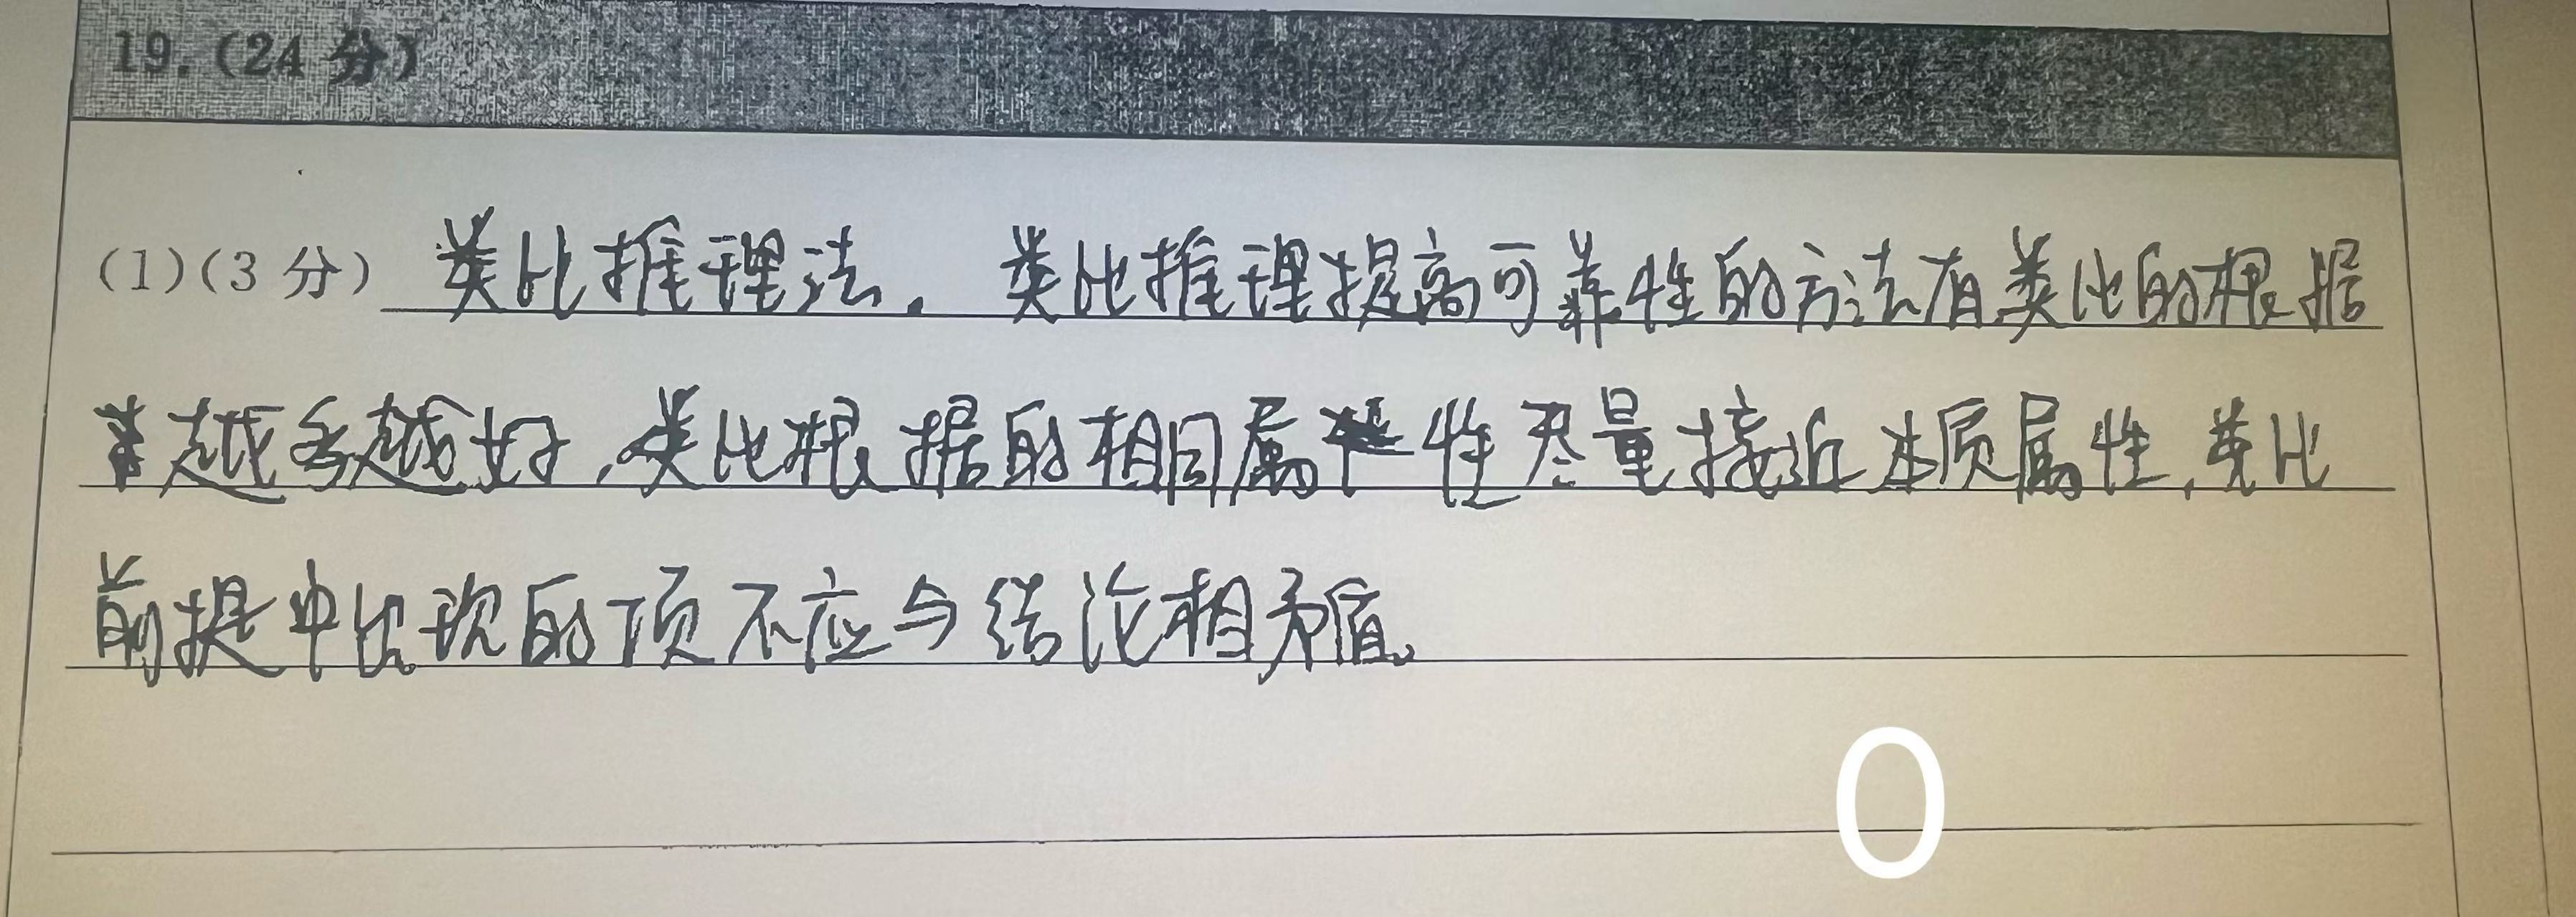 19.(24 分)
(1)(3 分) 类比推理法。类比推理提高可靠性的方法有类比的根据
越多越好,类比根据的相同属性尽量接近本质属性,类比
前提中出现的项不应与结论相矛盾。
0